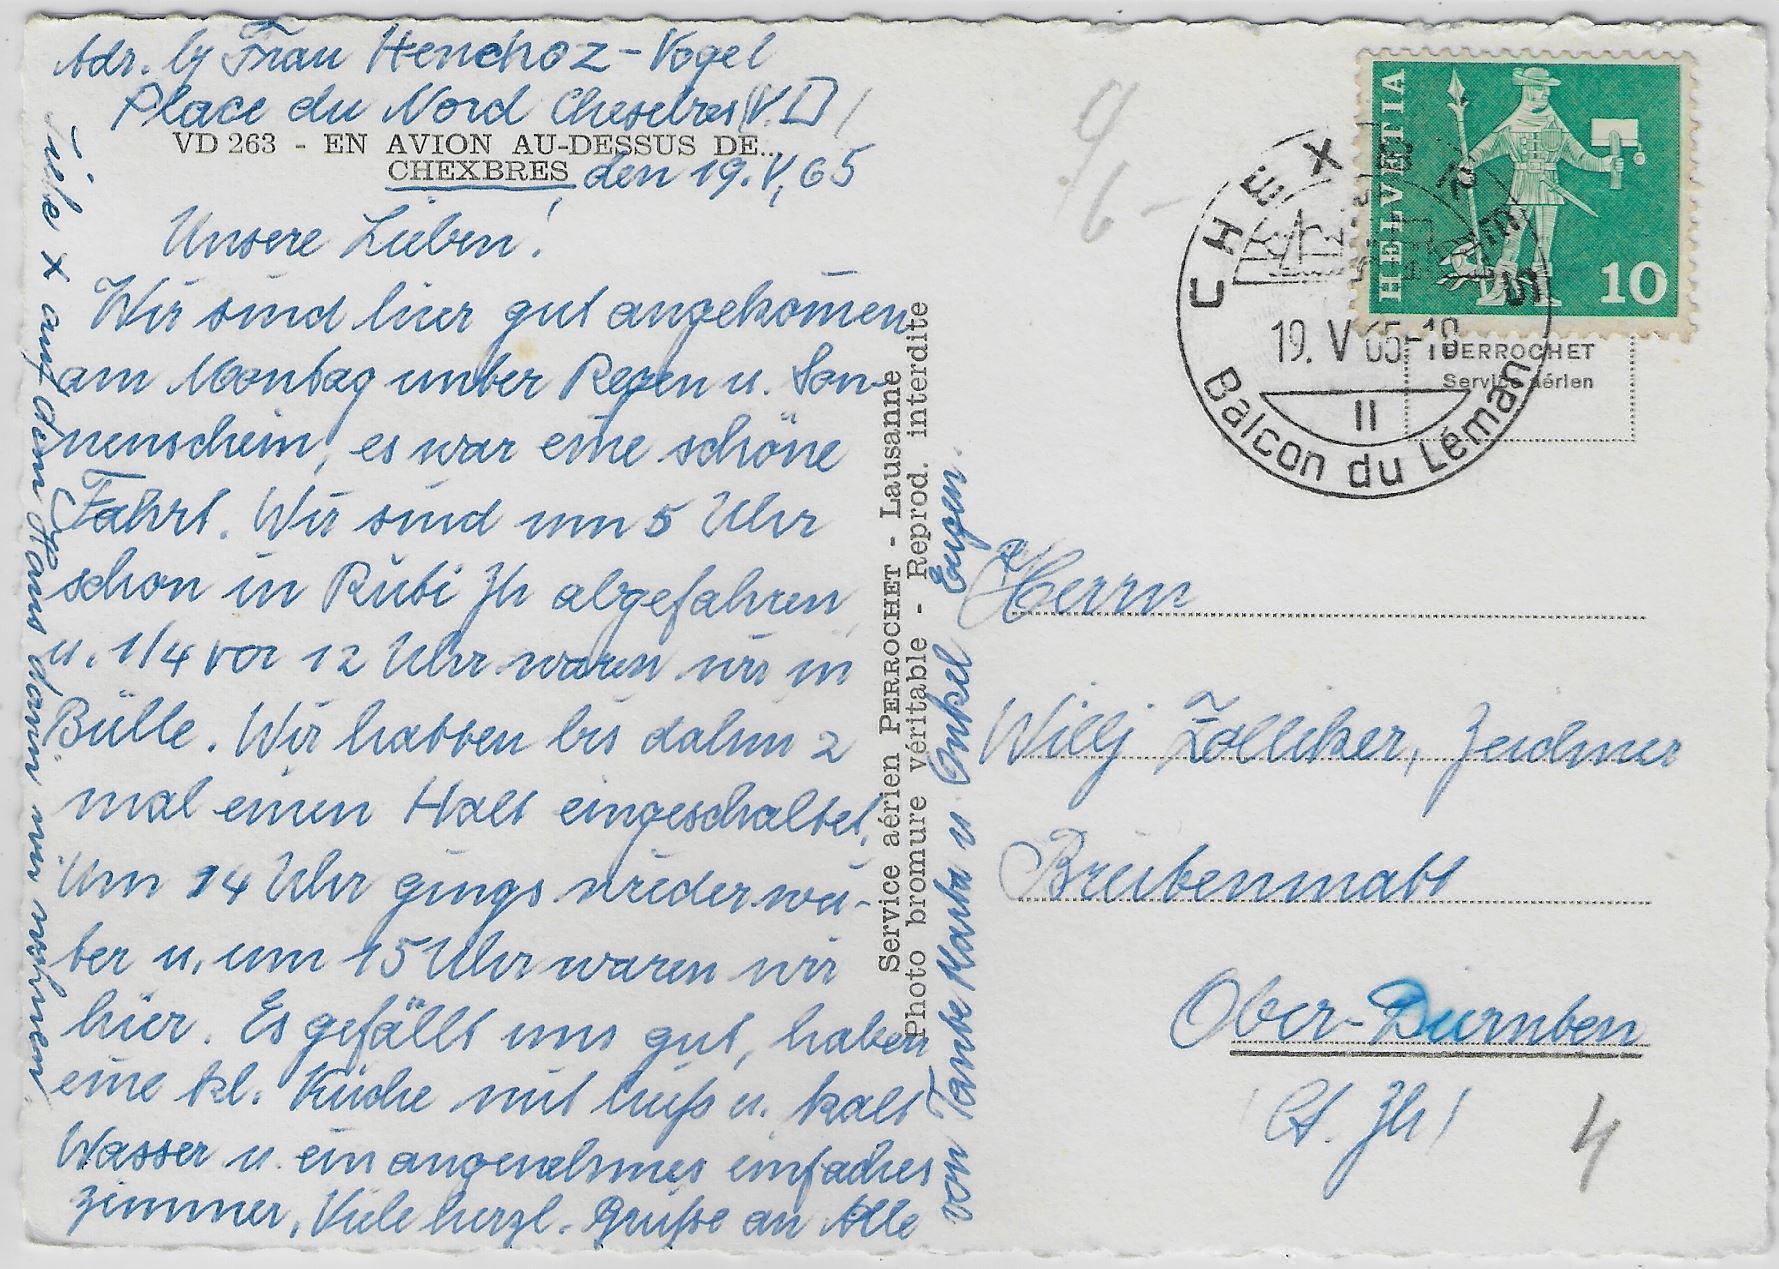 Adr. bg Frau Henchoz-Vogel
Place du Nord Chexbres (V.D)
VD 263 - EN AVION AU-DESSUS DE...
CHEXBRES, den 19. V. 65
Unsere Lieben!
Wir sind hier gut angekom̄en
am Montag unter Regen u. Son-
nenschein, es war eine schöne
Fahrt. Wir sind um 5 Uhr
schon in Rüti Zh abgefahren
u. 1/4 vor 12 Uhr waren wir in
Bülle. Wir hatten bis dahin 2
mal einen Halt eingeschaltet,
Um 14 Uhr gings wieder wei-
ter u. um 15 Uhr waren wir
hier. Es gefällt uns gut, haben
eine kl. Küche mit heiß u. kalt
Wasser u. ein angenehmes einfaches
Zimmer. Viele herzl. Grüße an Alle
von Tante Marta u. Onkel Eugen.
Siehe x auf dem Haus darin wir wohnen
Service aérien PERROCHET - Lausanne
Photo bromure véritable - Reprod. interdite
HELVETIA
10
CHEXBRES
19. V 65-18
II
Balcon du Léman
PERROCHET
Service aérien
Herrn
Willj Zolliker, Zeichner
Breitenmatt
Ober-Dürnten
(Ct. Zh)
4